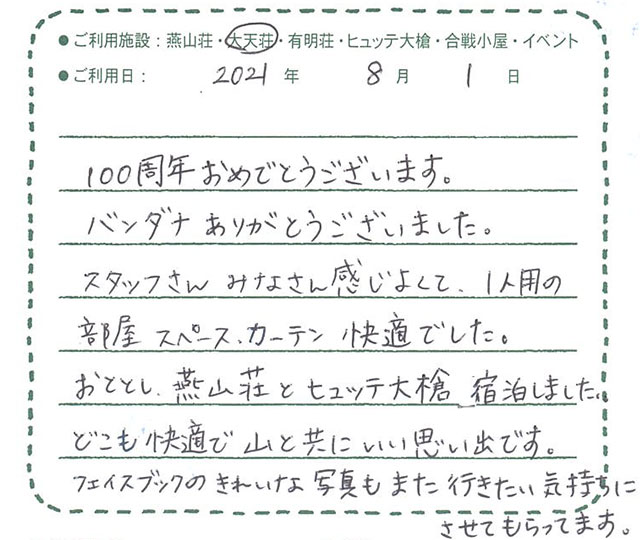 ●ご利用施設：燕山荘・大天荘・有明荘・ヒュッテ大槍・合戦小屋・イベント
●ご利用日： 2021 年 8 月 1 日
100周年おめでとうございます。
バンダナ ありがとうございました。
スタッフさん みなさん感じよくて、1人用の
部屋 スペース、カーテン 快適でした。
おととし、燕山荘とヒュッテ大槍 宿泊しました。
どこも快適で 山と共にいい思い出です。
フェイスブックの きれいな 写真も また 行きたい 気持ちに
させてもらってます。